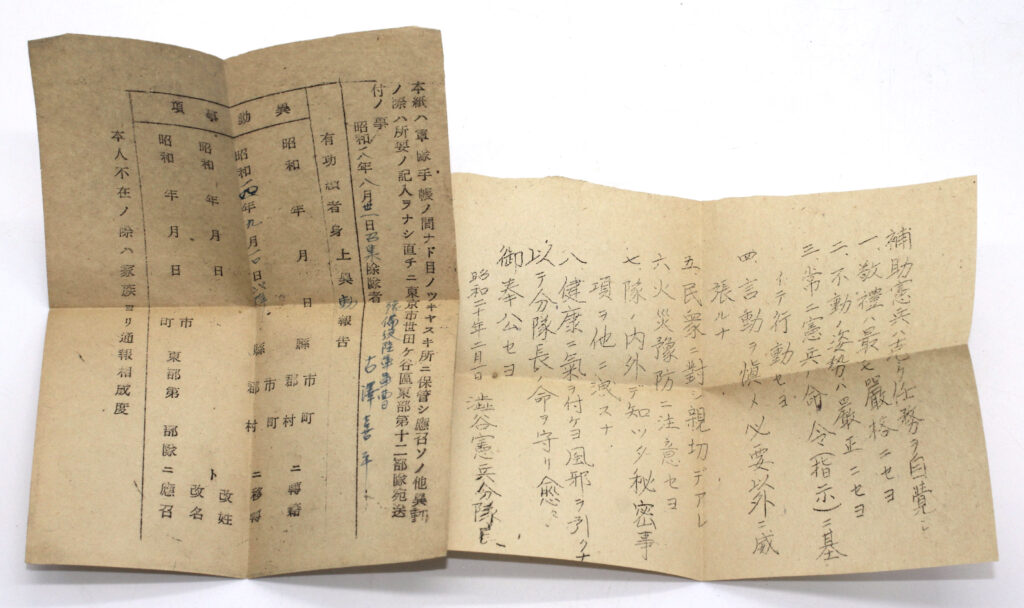 補助憲兵ハ克ク任務ヲ自覺シ
一、敬禮ハ最モ嚴格ニセヨ
二、不動ノ姿勢ハ嚴正ニセヨ
三、常ニ憲兵ノ命令(指示)ニ基
イテ行動セヨ
四、言動ヲ愼メ必要以外ニ威
張ルナ
五、民衆ニ對シ親切デアレ
六、火災豫防ニ注意セヨ
七、隊ノ内外デ知ツタ秘密事
項ヲ他ニ洩スナ
八、健康ニ氣ヲ付ケヨ風邪ヲ引クナ
以テ分隊長ノ命ヲ守リ愈々
御奉公セヨ
昭和二十年二月 日 澁谷憲兵分隊長
本紙ハ軍隊手帳ノ間ナド目ノツキヤスキ所ニ保管シ應召ソノ他異動
ノ際ハ所要ノ記入ヲナシ直チニ東京市世田ケ谷區東部第十二部隊宛送
付ノ事
昭和 八年八月 日召集除隊者
有功 者身上異動報告
異動事項
昭和 年 月 日 縣 郡 市 町 村 ニ轉籍
昭和 年九月 日 縣 郡 市 町 村 ニ移轉
昭和 年 月 日 ト 改姓 改名
昭和 年 月 日 東部第 部隊ニ應召
本人不在ノ際ハ家族ヨリ通報相成度